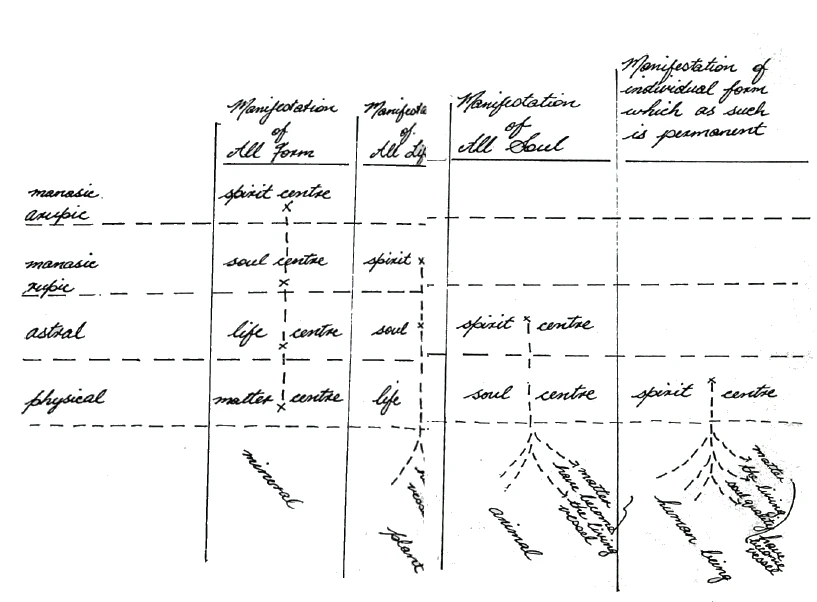 Manifestation
of
All Form
Manifesta
of
All Lif
Manifestation
of
All Soul
Manifestation of
individual form
which as such
is permanent
manasic
arupic
spirit centre
manasic
rupic
soul centre
spirit
astral
life centre
soul
spirit centre
physical
matter centre
life
soul centre
spirit centre
mineral
plant
animal
matter
have become
the living
vessel
human being
matter
the living
soul quality
have
become
vessel